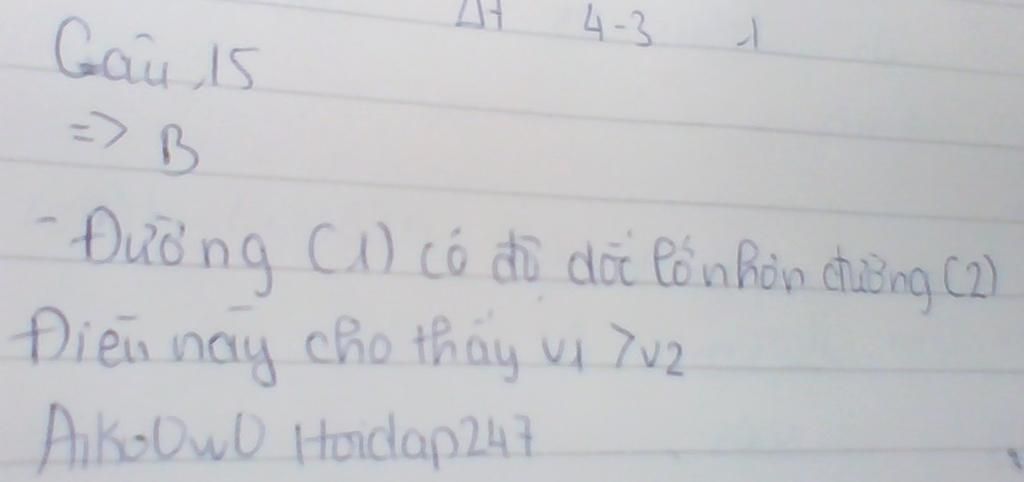 Δt 4-3 1
Câu 15
=> B
- Đường (1) có độ dốc lớn hơn đường (2)
Điều này cho thấy v1 > v2
AiKoOwO Hoidap247